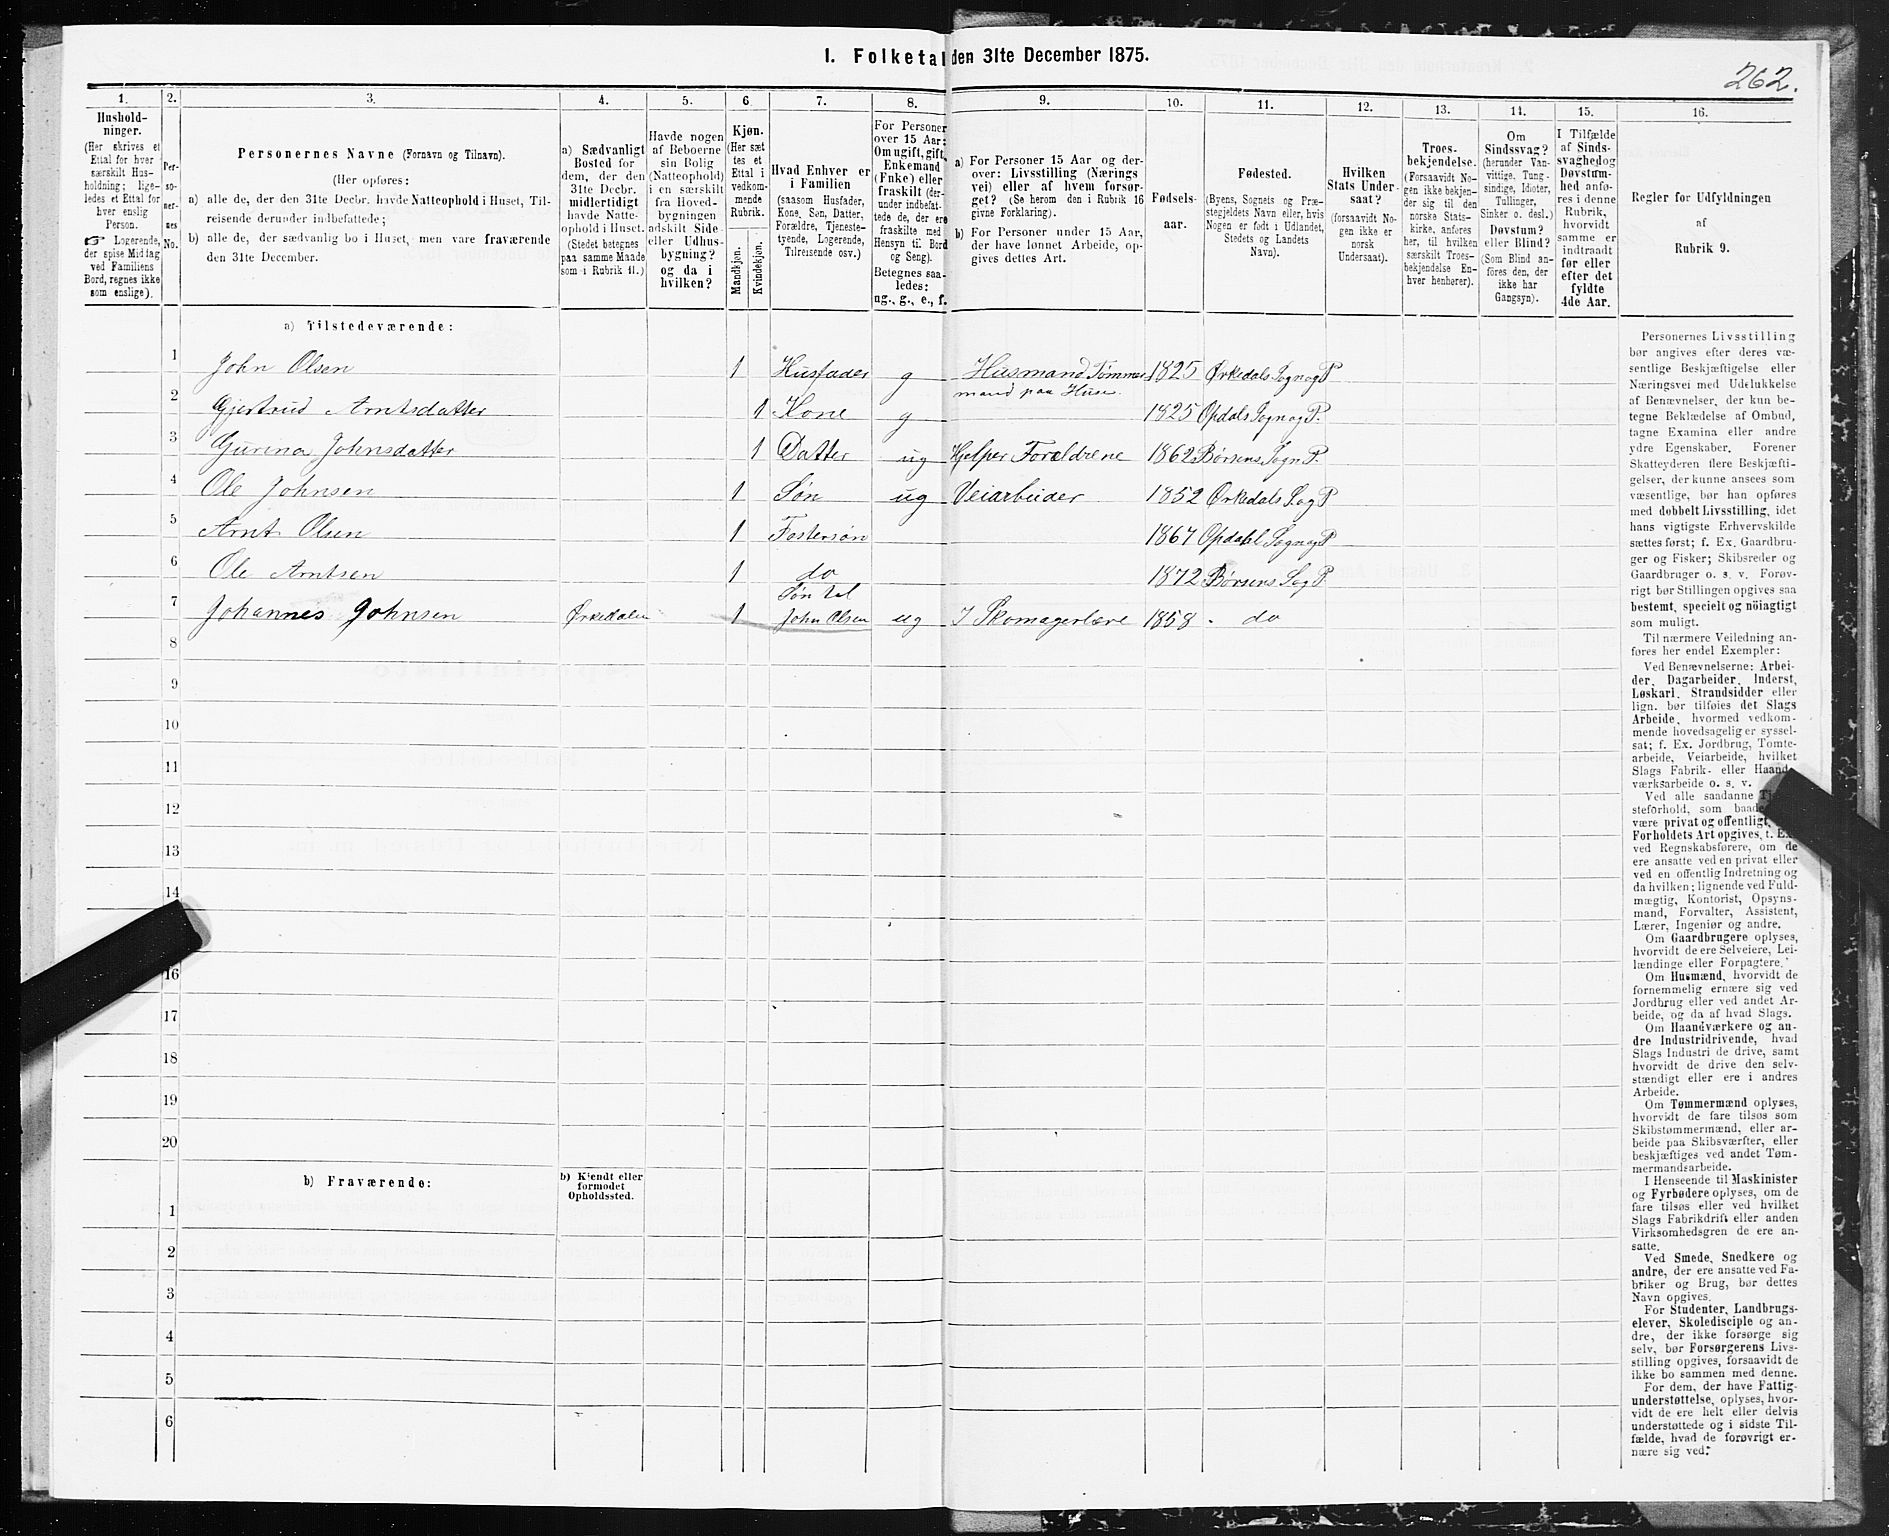 262.
I. Folketal den 31te December 1875.
1.
Hushold-
ninger.
(Her skrives et
Ettal for hver
særskilt Hus-
holdning; lige-
ledes et Ettal for
hver enslig
Person.
☞ Logerende,
der spise Middag
ved Familiens
Bord, regnes ikke
som enslige).
2.
Per-
so-
ner-
nes
No.
3.
Personernes Navne (Fornavn og Tilnavn).
(Her opføres:
a) alle de, der den 31te Decbr. havde Natteophold i Huset, Til-
reisende derunder indbefattede;
b) alle de, der sædvanlig bo i Huset, men vare fraværende
den 31te December.
4.
a) Sædvanligt
Bosted for
dem, der den
31te Decbr.
midlertidigt
havde Natte-
ophold i Huset.
(Stedet betegnes
paa samme Maade
som i Rubrik 11.)
5.
Havde nogen
af Beboerne
sin Bolig
(Natteophold)
i en særskilt
fra Hoved-
bygningen
adskilt Side-
eller Udhus-
bygning?
og da i
hvilken?
6.
Kjøn.
(Her sæt-
tes et
Ettal i
vedkom-
mende
Rubrik.
Mandkjøn.
Kvindekjøn.
7.
Hvad Enhver er
i Familien
(saasom Husfader,
Kone, Søn, Datter,
Forældre, Tjeneste-
tyende, Logerende,
Tilreisende osv.)
8.
For Personer
over 15 Aar:
Om ugift, gift,
Enkemand
(Enke) eller
fraskilt (der-
under indbefat-
tede de, der ere
fraskilte med
Hensyn til Bord
og Seng).
Betegnes saa-
ledes:
ug., g., e., f.
9.
a) For Personer 15 Aar og der-
over: Livsstilling (Nærings
vei) eller af hvem forsør-
get? (Se herom den i Rubrik 16
givne Forklaring).
b) For Personer under 15 Aar,
der have lønnet Arbeide, op-
gives dettes Art.
10.
Fødsels-
aar.
11.
Fødested.
(Byens, Sognets og Præ-
stegjeldets Navn eller, hvis
Nogen er født i Udlandet,
Stedets og Landets
Navn).
12.
Hvilken
Stats Under-
saat?
(forsaavidt No-
gen ikke er
norsk
Undersaat).
13.
Troes-
bekjendelse.
(Forsaavidt No-
gen ikke bekjen-
der sig til den
norske Stats-
kirke, anføres
her, til hvilken
særskilt Troes-
bekjendelse En-
hver henhører).
14.
Om
Sindssvag?
(herunder Van-
vittige, Tung-
sindige, Idioter,
Tullinger,
Sinker o. desl.)
Døvstum?
eller Blind?
(Som Blind an-
føres den, der
ikke har
Gangsyn).
15.
I Tilfælde
af Sinds-
svaghed og
Døvstum-
hed anfø-
res i denne
Rubrik,
hvorvidt
samme er
indtraadt
før eller
efter det
fyldte
4de Aar.
16.
Regler for Udfyldningen
af
Rubrik 9.
a) Tilstedeværende:
1 John Olsen 1 Husfader g Husmand Tømmer-
mand paa Huse. 1825 Ørkedals Sogn og P
2 Gjertrud Arntsdatter 1 Kone g 1825 Opdals Sogn og P.
3 Gurina Johnsdatter 1 Datter ug Hjelper Forældrene 1862 Børsens Sogn P.
4 Ole Johnsen 1 Søn ug Veiarbeider 1852 Ørkedals S. og P
5 Arnt Olsen 1 Fostersøn 1867 Opdahl Sogn og P
6 Ole Arntsen 1 do 1872 Børsens S og P.
7 Johannes Johnsen Ørkedalen 1 Søn til
John Olsen ug I Skomagerlære 1858 - do
8
9
10
11
12
13
14
16
17
18
19
20
b) Fraværende:
b) Kjendt eller
formodet
Opholdssted.
1
2
3
4
5
6
Personernes Livsstilling
bør angives efter deres væ-
sentlige Beskjæftigelse eller
Næringsvei med Udelukkelse
af Benævnelser, der kun be-
tegne Beklædelse af Ombud,
tagne Examina eller andre
ydre Egenskaber. Forener
Skatteyderen flere Beskjæfti-
gelser, der kunne ansees som
væsentlige, bør han opføres
med dobbelt Livsstilling, idet
hans vigtigste Erhvervskilde
sættes først; f. Ex. Gaardbru-
ger og Fisker; Skibsreder og
Gaardbruger o. s. v. Forøv-
rigt bør Stillingen opgives saa
bestemt, specielt og nöiagtigt
som muligt.
Til nærmere Veiledning an-
føres her endel Exempler:
Ved Benævnelserne: Arbei-
der, Dagarbeider, Inderst,
Løskarl, Strandsidder eller
lign. bør tilføies det Slags
Arbeide, hvormed vedkom-
mende hovedsagelig er syssel-
sat; f. Ex. Jordbrug, Tomte-
arbeide, Veiarbeide, hvilket
Slags Fabrik- eller Haand-
værksarbeide o. s. v.
Ved alle saadanne
steforhold, som baade
være privat og offentligt,
Forholdets Art opgives, t. Ex.
ved Regnskabsførere, om de
ere ansatte ved en privat eller
ved en offentlig Indretning og
da hvilken; lignende ved Fuld-
mægtig, Kontorist, Opsyns-
mand, Forvalter, Assistent,
Lærer, Ingeniør og andre.
Om Gaardbrugere oplyses,
hvorvidt de ere Selveiere, Lei-
lændinge eller Forpagtere.
Om Husmænd, hvorvidt de
fornemmelig ernære sig ved
Jordbrug eller ved andet Ar-
beide, og da af hvad Slags.
Om Haandværkere og an-
dre Industridrivende, hvad
Slags Industri de drive, samt
hvorvidt de drive den selv-
stændigt eller ere i andres
Arbeide.
Om Tømmermænd oplyses,
hvorvidt de fare tilsøs som
Skibstømmermænd, eller ar-
beide paa Skibsværfter, eller
beskjæftiges ved andet Tøm-
mermandsarbeide.
I Henseende til Maskinister
og Fyrbødere oplyses, om de
fare tilsøs eller ved hvilket
Slags Fabrikdrift eller anden
Virksomhedsgren de ere an-
satte.
Ved Smede, Snedkere og
andre, der ere ansatte ved Fa-
briker og Brug, bør dettes
Navn opgives.
For Studenter, Landbrugs-
elever, Skoledisciple og an-
dre, der ikke forsørge sig
selv, bør Forsørgerens Livs-
stilling opgives, forsaavidt de
ikke bo sammen med denne.
For dem, der have Fattig-
understøttelse, oplyses, hvor-
vidt de ere helt eller delvis
understøttede og i sidste Til-
fælde, hvad de forøvrigt er-
nære sig ved.